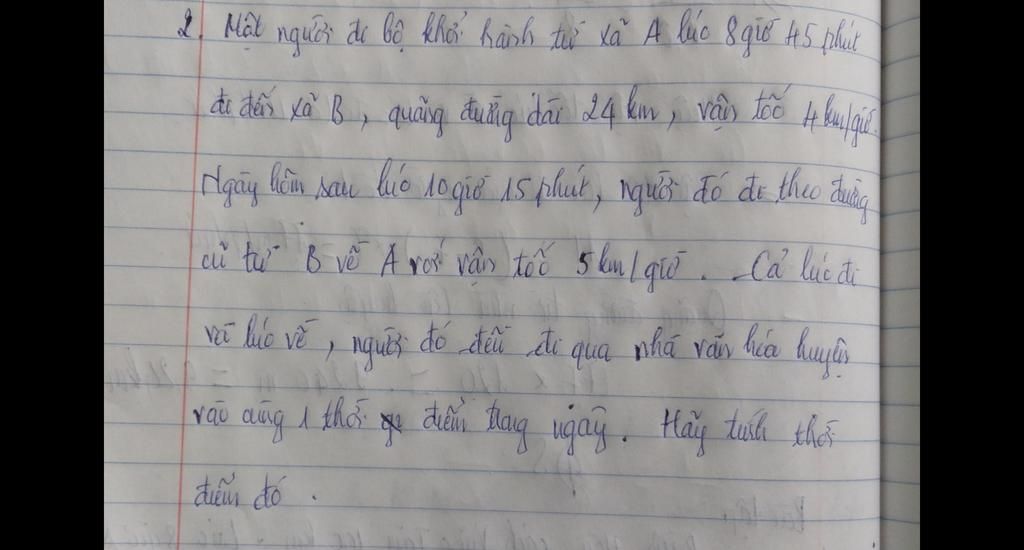 2. Một người đi bộ khởi hành từ xã A lúc 8 giờ 45 phút
đi đến xã B, quãng đường dài 24 km, vận tốc 4 km/giờ.
Ngày hôm sau lúc 10 giờ 15 phút, người đó đi theo đường
cũ từ B về A với vận tốc 5 km/giờ. Cả lúc đi
và lúc về, người đó đều đi qua nhà văn hóa huyện
vào cùng 1 thời điểm trong ngày. Hãy tính thời
điểm đó.